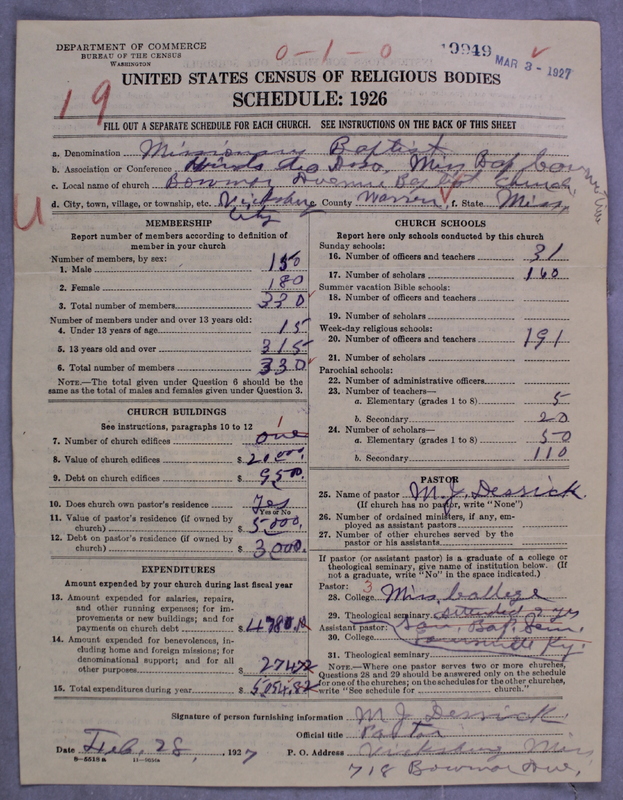 DEPARTMENT OF COMMERCE
BUREAU OF THE CENSUS
WASHINGTON
0-1-0
19949
MAR 3 - 1927
19
UNITED STATES CENSUS OF RELIGIOUS BODIES
SCHEDULE: 1926
FILL OUT A SEPARATE SCHEDULE FOR EACH CHURCH. SEE INSTRUCTIONS ON THE BACK OF THIS SHEET
a. Denomination Missionary Baptist
b. Association or Conference Miss Bap
c. Local name of church Bowmar Avenue Baptist Church
d. City, town, village, or township, etc. Vicksburg County Warren f. State Miss,
City
U
MEMBERSHIP
Report number of members according to definition of member in your church
Number of members, by sex:
1. Male 150
2. Female 180
3. Total number of members 330
Number of members under and over 13 years old:
4. Under 13 years of age 15
5. 13 years old and over 315
6. Total number of members 330
NOTE.—The total given under Question 6 should be the same as the total of males and females given under Question 3.
CHURCH BUILDINGS
See instructions, paragraphs 10 to 12
7. Number of church edifices one 1
8. Value of church edifices $ 20,000.
9. Debt on church edifices $ 9500.
10. Does church own pastor's residence Yes
Yes or No
11. Value of pastor's residence (if owned by church) $ 5000.
12. Debt on pastor's residence (if owned by church) $ 3,000.
EXPENDITURES
Amount expended by your church during last fiscal year
13. Amount expended for salaries, repairs, and other running expenses; for improvements or new buildings; and for payments on church debt $
14. Amount expended for benevolences, including home and foreign missions; for denominational support; and for all other purposes $
15. Total expenditures during year $
CHURCH SCHOOLS
Report here only schools conducted by this church
Sunday schools:
16. Number of officers and teachers 31
17. Number of scholars 160
Summer vacation Bible schools:
18. Number of officers and teachers
19. Number of scholars
Week-day religious schools:
20. Number of officers and teachers 191
21. Number of scholars
Parochial schools:
22. Number of administrative officers
23. Number of teachers—
a. Elementary (grades 1 to 8) 5
b. Secondary 20
24. Number of scholars—
a. Elementary (grades 1 to 8) 50
b. Secondary 110
PASTOR
25. Name of pastor M. J. Derrick.
(If church has no pastor, write "None")
26. Number of ordained ministers, if any, employed as assistant pastors
27. Number of other churches served by the pastor or his assistants
If pastor (or assistant pastor) is a graduate of a college or theological seminary, give name of institution below. (If not a graduate, write "No" in the space indicated.)
Pastor: 3
28. College Miss College
29. Theological seminary attended 2 yrs
Assistant pastor: Sou. Bap. Sem.
30. College Louisville Ky.
31. Theological seminary
NOTE.—Where one pastor serves two or more churches, Questions 28 and 29 should be answered only on the schedule for one of the churches; on the schedules for the other churches, write "See schedule for church."
Signature of person furnishing information M J Derrick
Official title Pastor
Date Feb. 28, 1927 P. O. Address Vicksburg Miss
718 Bowmar Ave,
8—5518a 11—9650a